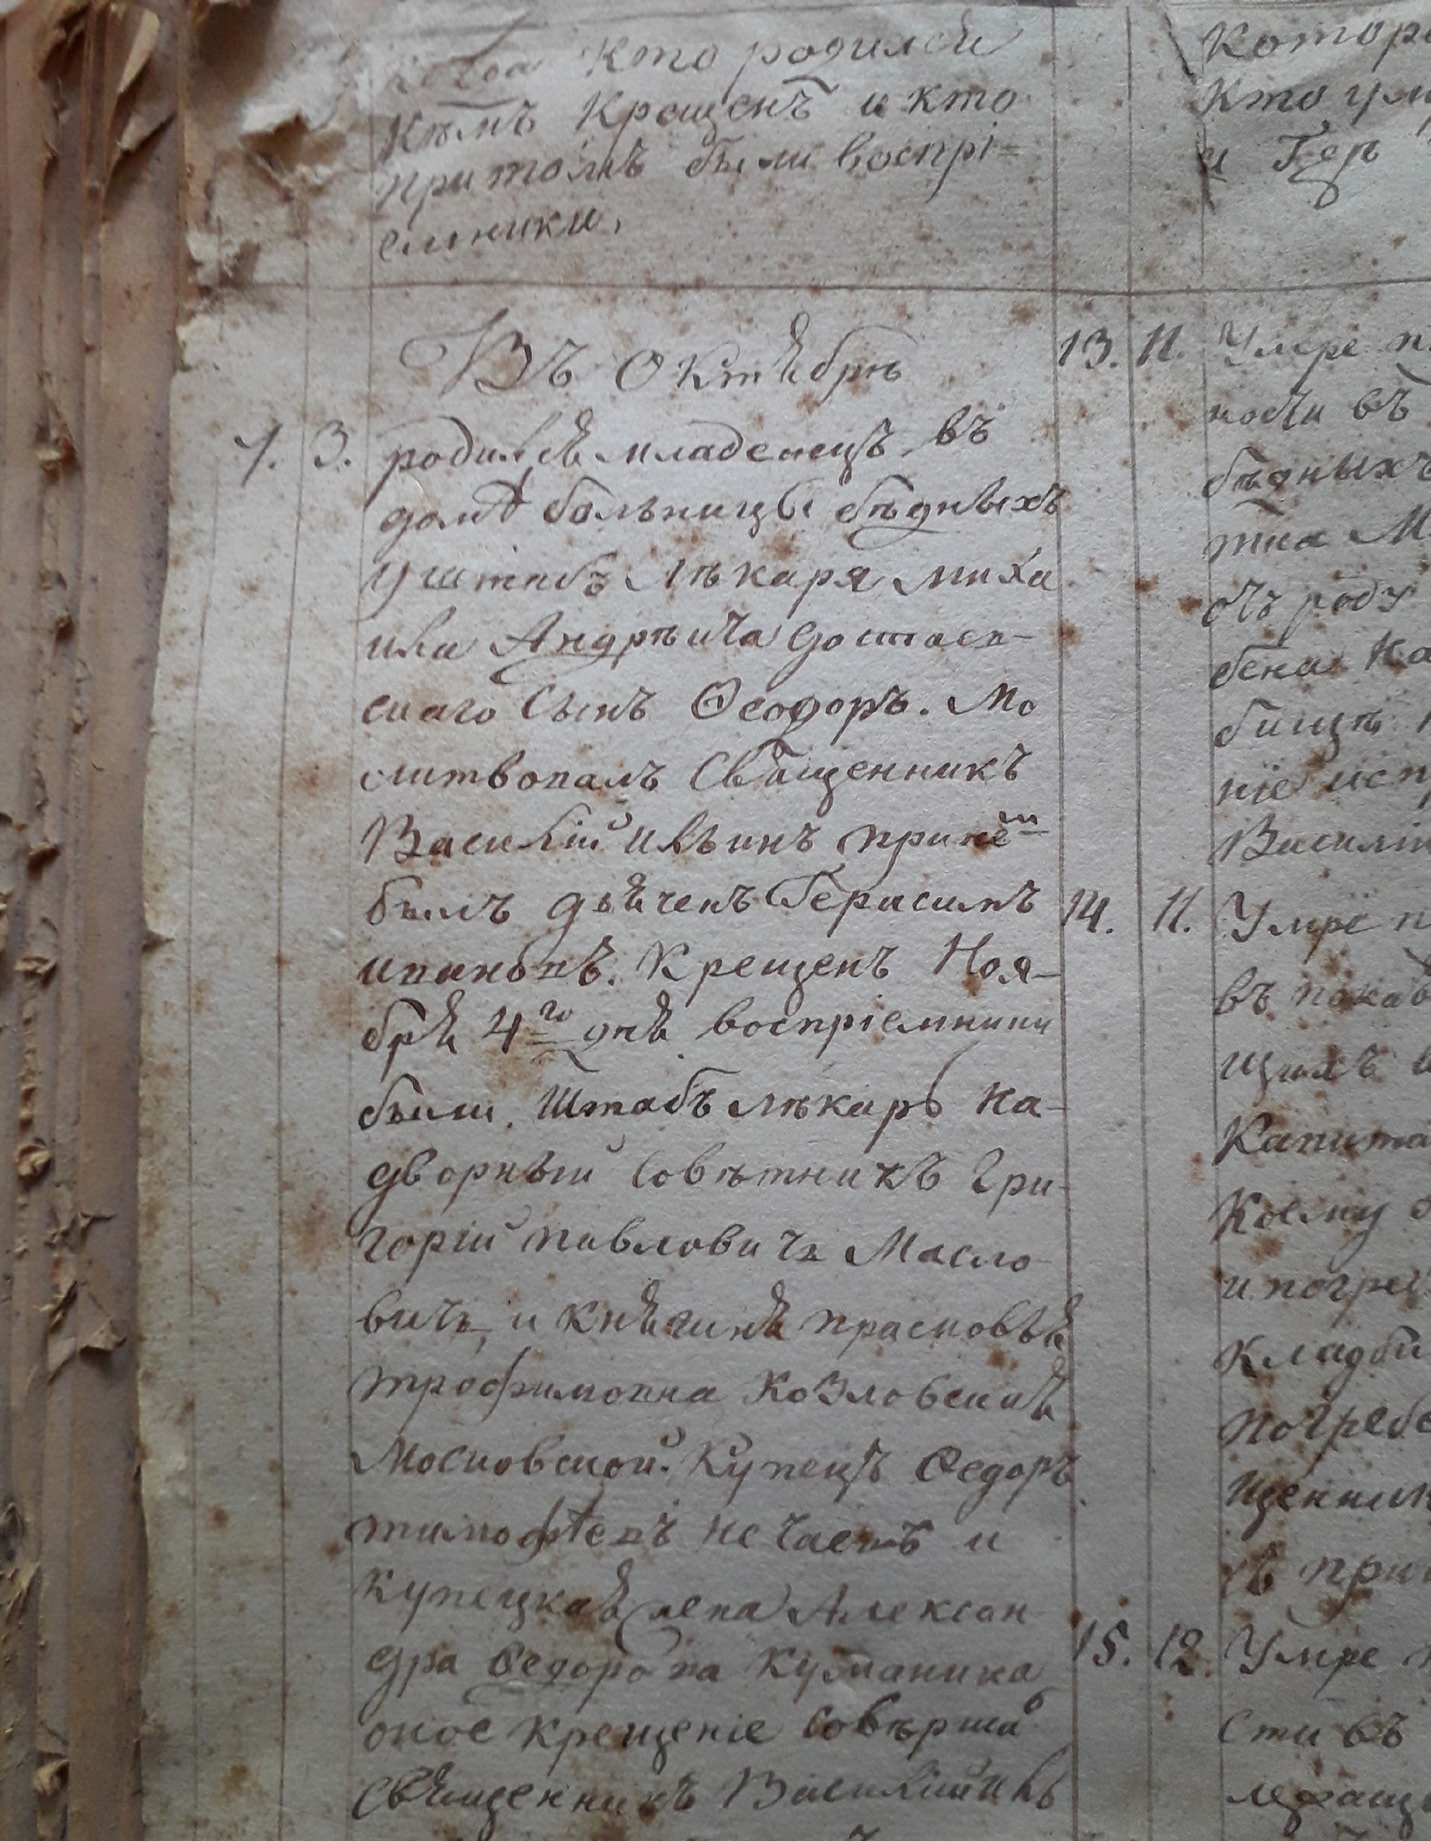 Кто родился
Кѣмъ Крещенъ и кто
При томъ были воспрі-
емники,
Въ Октѧбрѣ
1. 3. родилсѧ младенецъ, въ
домѣ больницы бѣдныхъ
у штабъ лѣкаря миха
ила Андрѣича Достаев-
скаго Сынъ Ѳеодоръ. Мо
литвовалъ Свѧщенникъ
Василій ильинъ при нем
былъ дьѧченъ Герасимъ
ивановъ. Крещенъ Ноя-
брѧ 4го днѧ воспріемники
были. Штабъ лѣкарь На-
дворный Совѣтникъ Гри-
горій павловичъ Масло
вичъ, и кнѧгинѧ прасковьѧ
трофимовна Козловскаѧ
Московской Купецъ Ѳедоръ
тимофѣевъ нечаевъ и
купецкаѧ жена Алексан
дра Ѳедоровна Куманина
оное крещеніе Совѣршал
свѧщенникъ Василій иль
Котор
Кто ум
и Гдѣ
13. 11. Умре
ности въ
бѣдныхъ
тна М
отъ роду
бена На
бищѣ
ніе исп
Василій
14. 11. Умре
въ показ
щихъ
Капита
Коему
и погреб
Кладби
погребе
щенник
съ при
15. 12. Умре
сти въ
лежащ